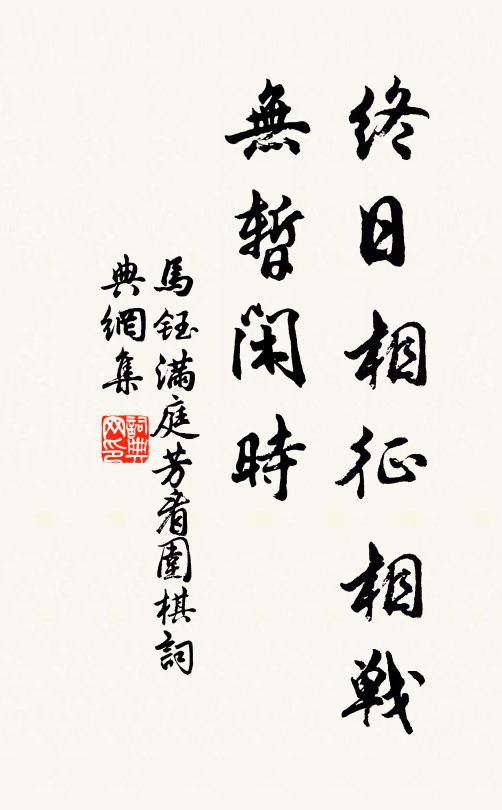 終日相征相戰
無暫閑時
馬鈺滿庭芳看圍棋詞
典網集
詞典网印